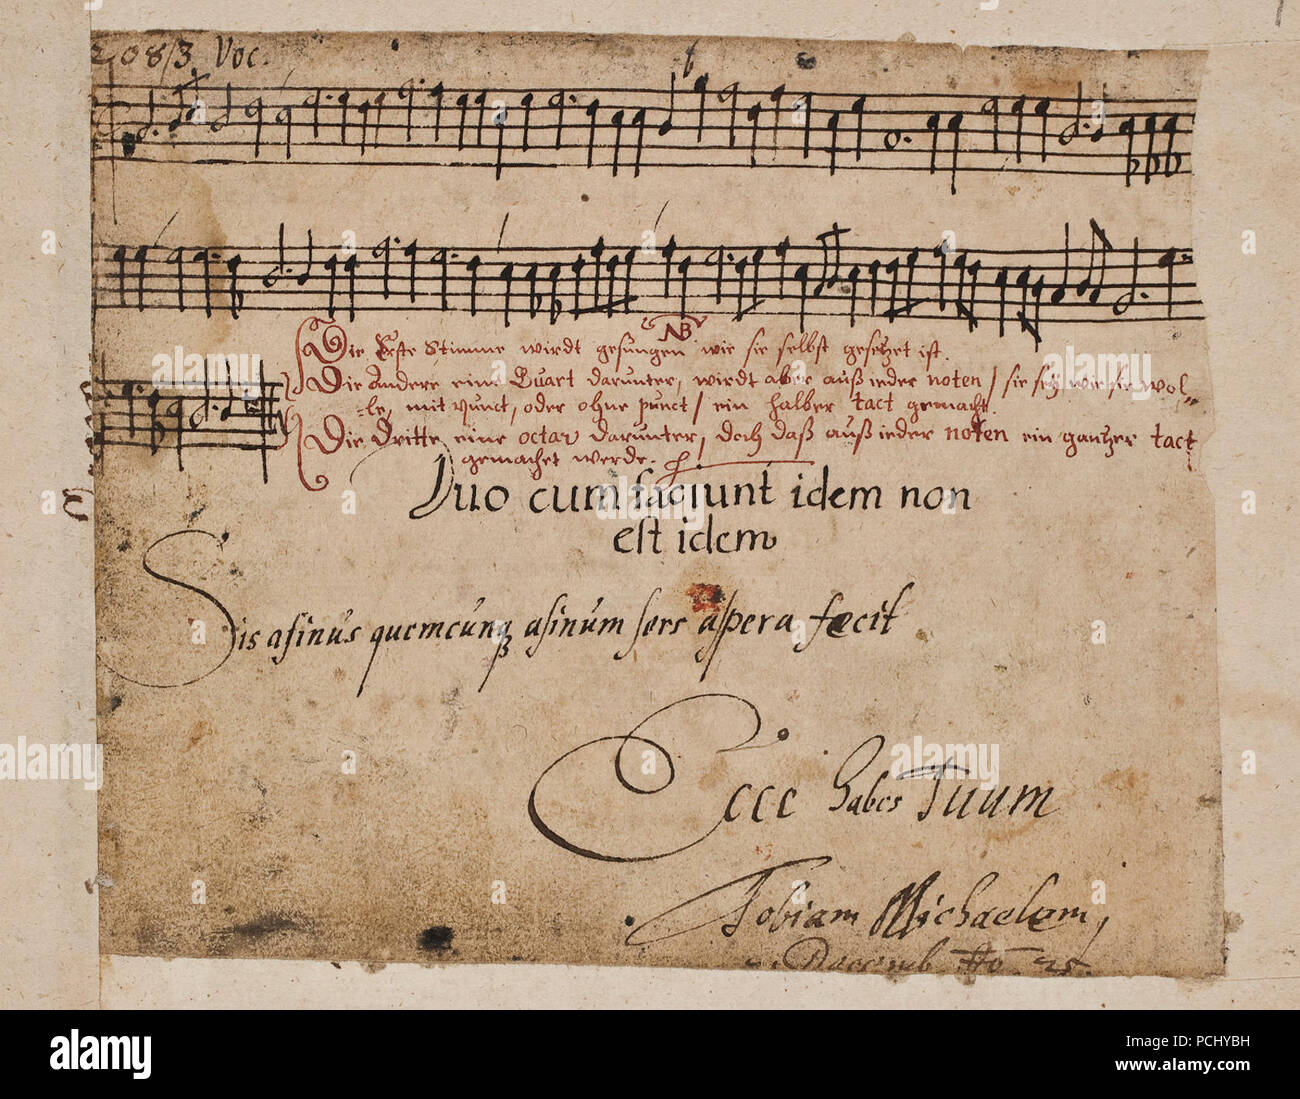 3 Voc.
NB
Die Erste Stimme wirdt gesungen wie sie selbst gesetzet ist.
Die Andere eine Quart darunter, wirdt aber auß ieder noten / sie sey wie sie wol-
le, mit punct, oder ohne punct / ein halber tact gemacht.
Die Dritte eine octav darunter, doch daß auß ieder noten ein gantzer tact
gemachet werde.
Duo cum faciunt idem non
est idem
Sis asinus quemcunq asinum sors aspera fecit
Ecce habes Tuum
Tobiam Michaelem,
Decemb
alamy
Image ID: PCHYBH
www.alamy.com